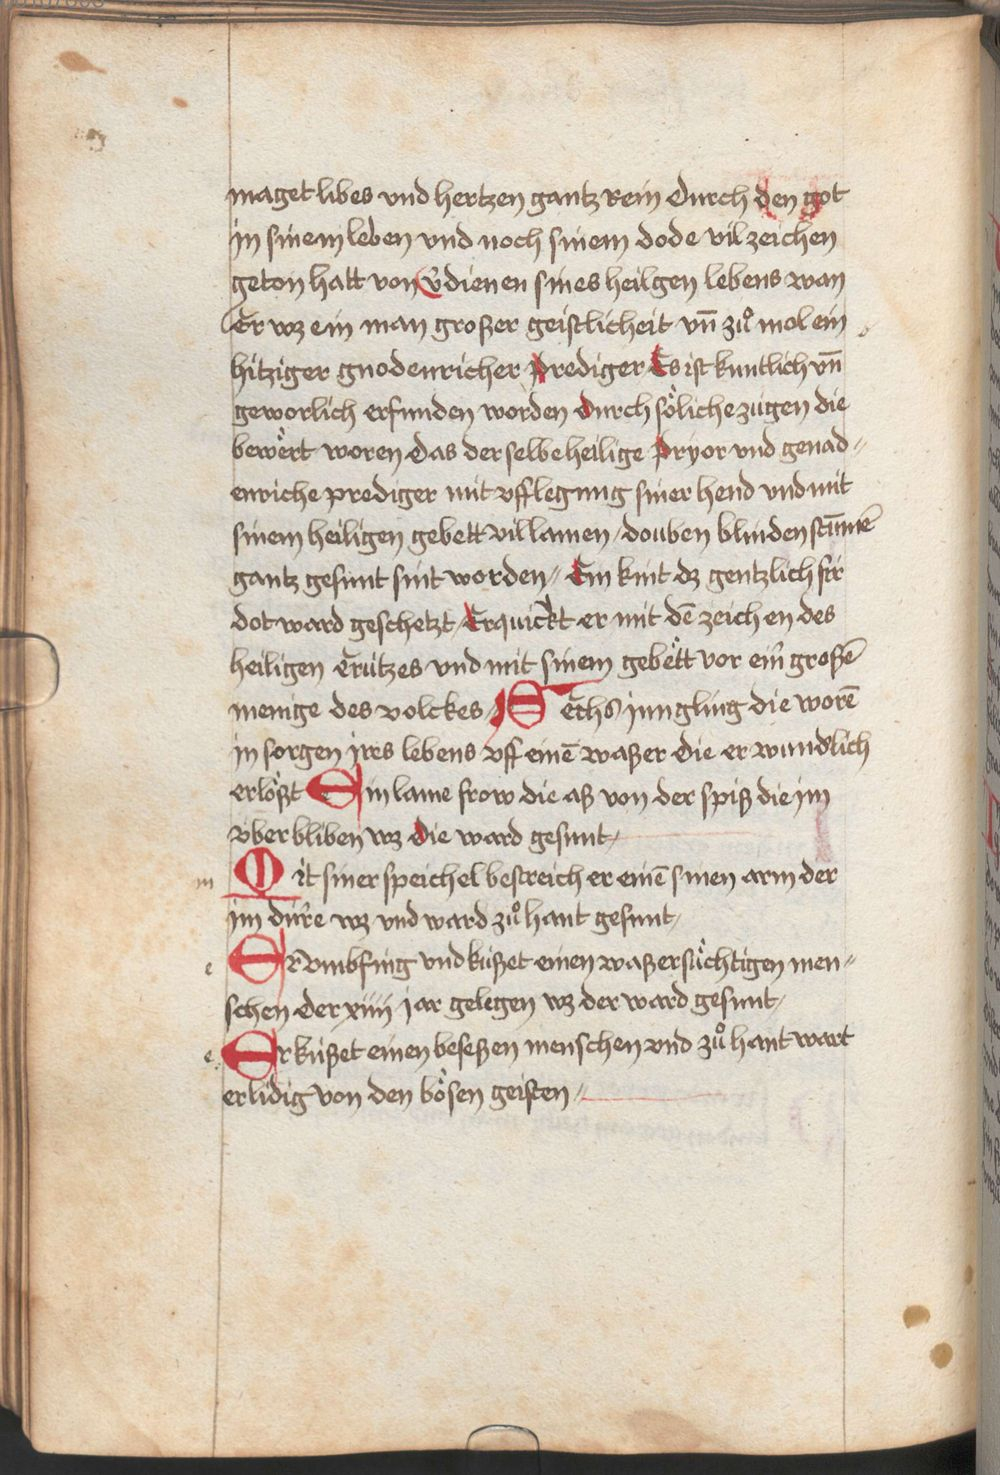 maget libes vnd hertzen gantz Rein durch den got
jn sinem leben vnd noch sinem dode vil zeichen
geton hatt von v̄dienen sines heilgen lebens wan
Er wz ein man großer geistlicheit vn̄ zuͦ mol ein
hitziger gnodenricher prediger Es ist kuntlich vn̄
geworlich erfunden worden durch soͤliche zugen die
bewert woren das der selbe heilige pryor vnd genad⸗
enriche prediger mit vfflegung siner hend vnd mit
sinem heiligen gebett vil lamen / douben blinden stūmē
gantz gesunt sint worden⸗ Ein kint dz gentzlich fir
dot ward geschetzt / Erquickt er mit dē zeichen des
heiligen Crützes vnd mit sinem gebett vor ein großē
menige des volckes / Sechs jungling die worē
jn sorgen jres lebens vff einē waßer die er wundlich
erlößt Ein lame frow die aß von der spiß die jm
vber bliben wz die ward gesunt /
m Mit siner speichel bestreich er einē sinen arm der
jm dürre wz vnd ward zuͦ hant gesunt /
e ER vmbfing vnd küßet einen waßersüchtigen men⸗
schen der xiiij jar gelegen wz der ward gesunt /
e Er küßet einen beseßen menschen vnd zuͦ hant wart
er lidig von den bösen geisten⸗